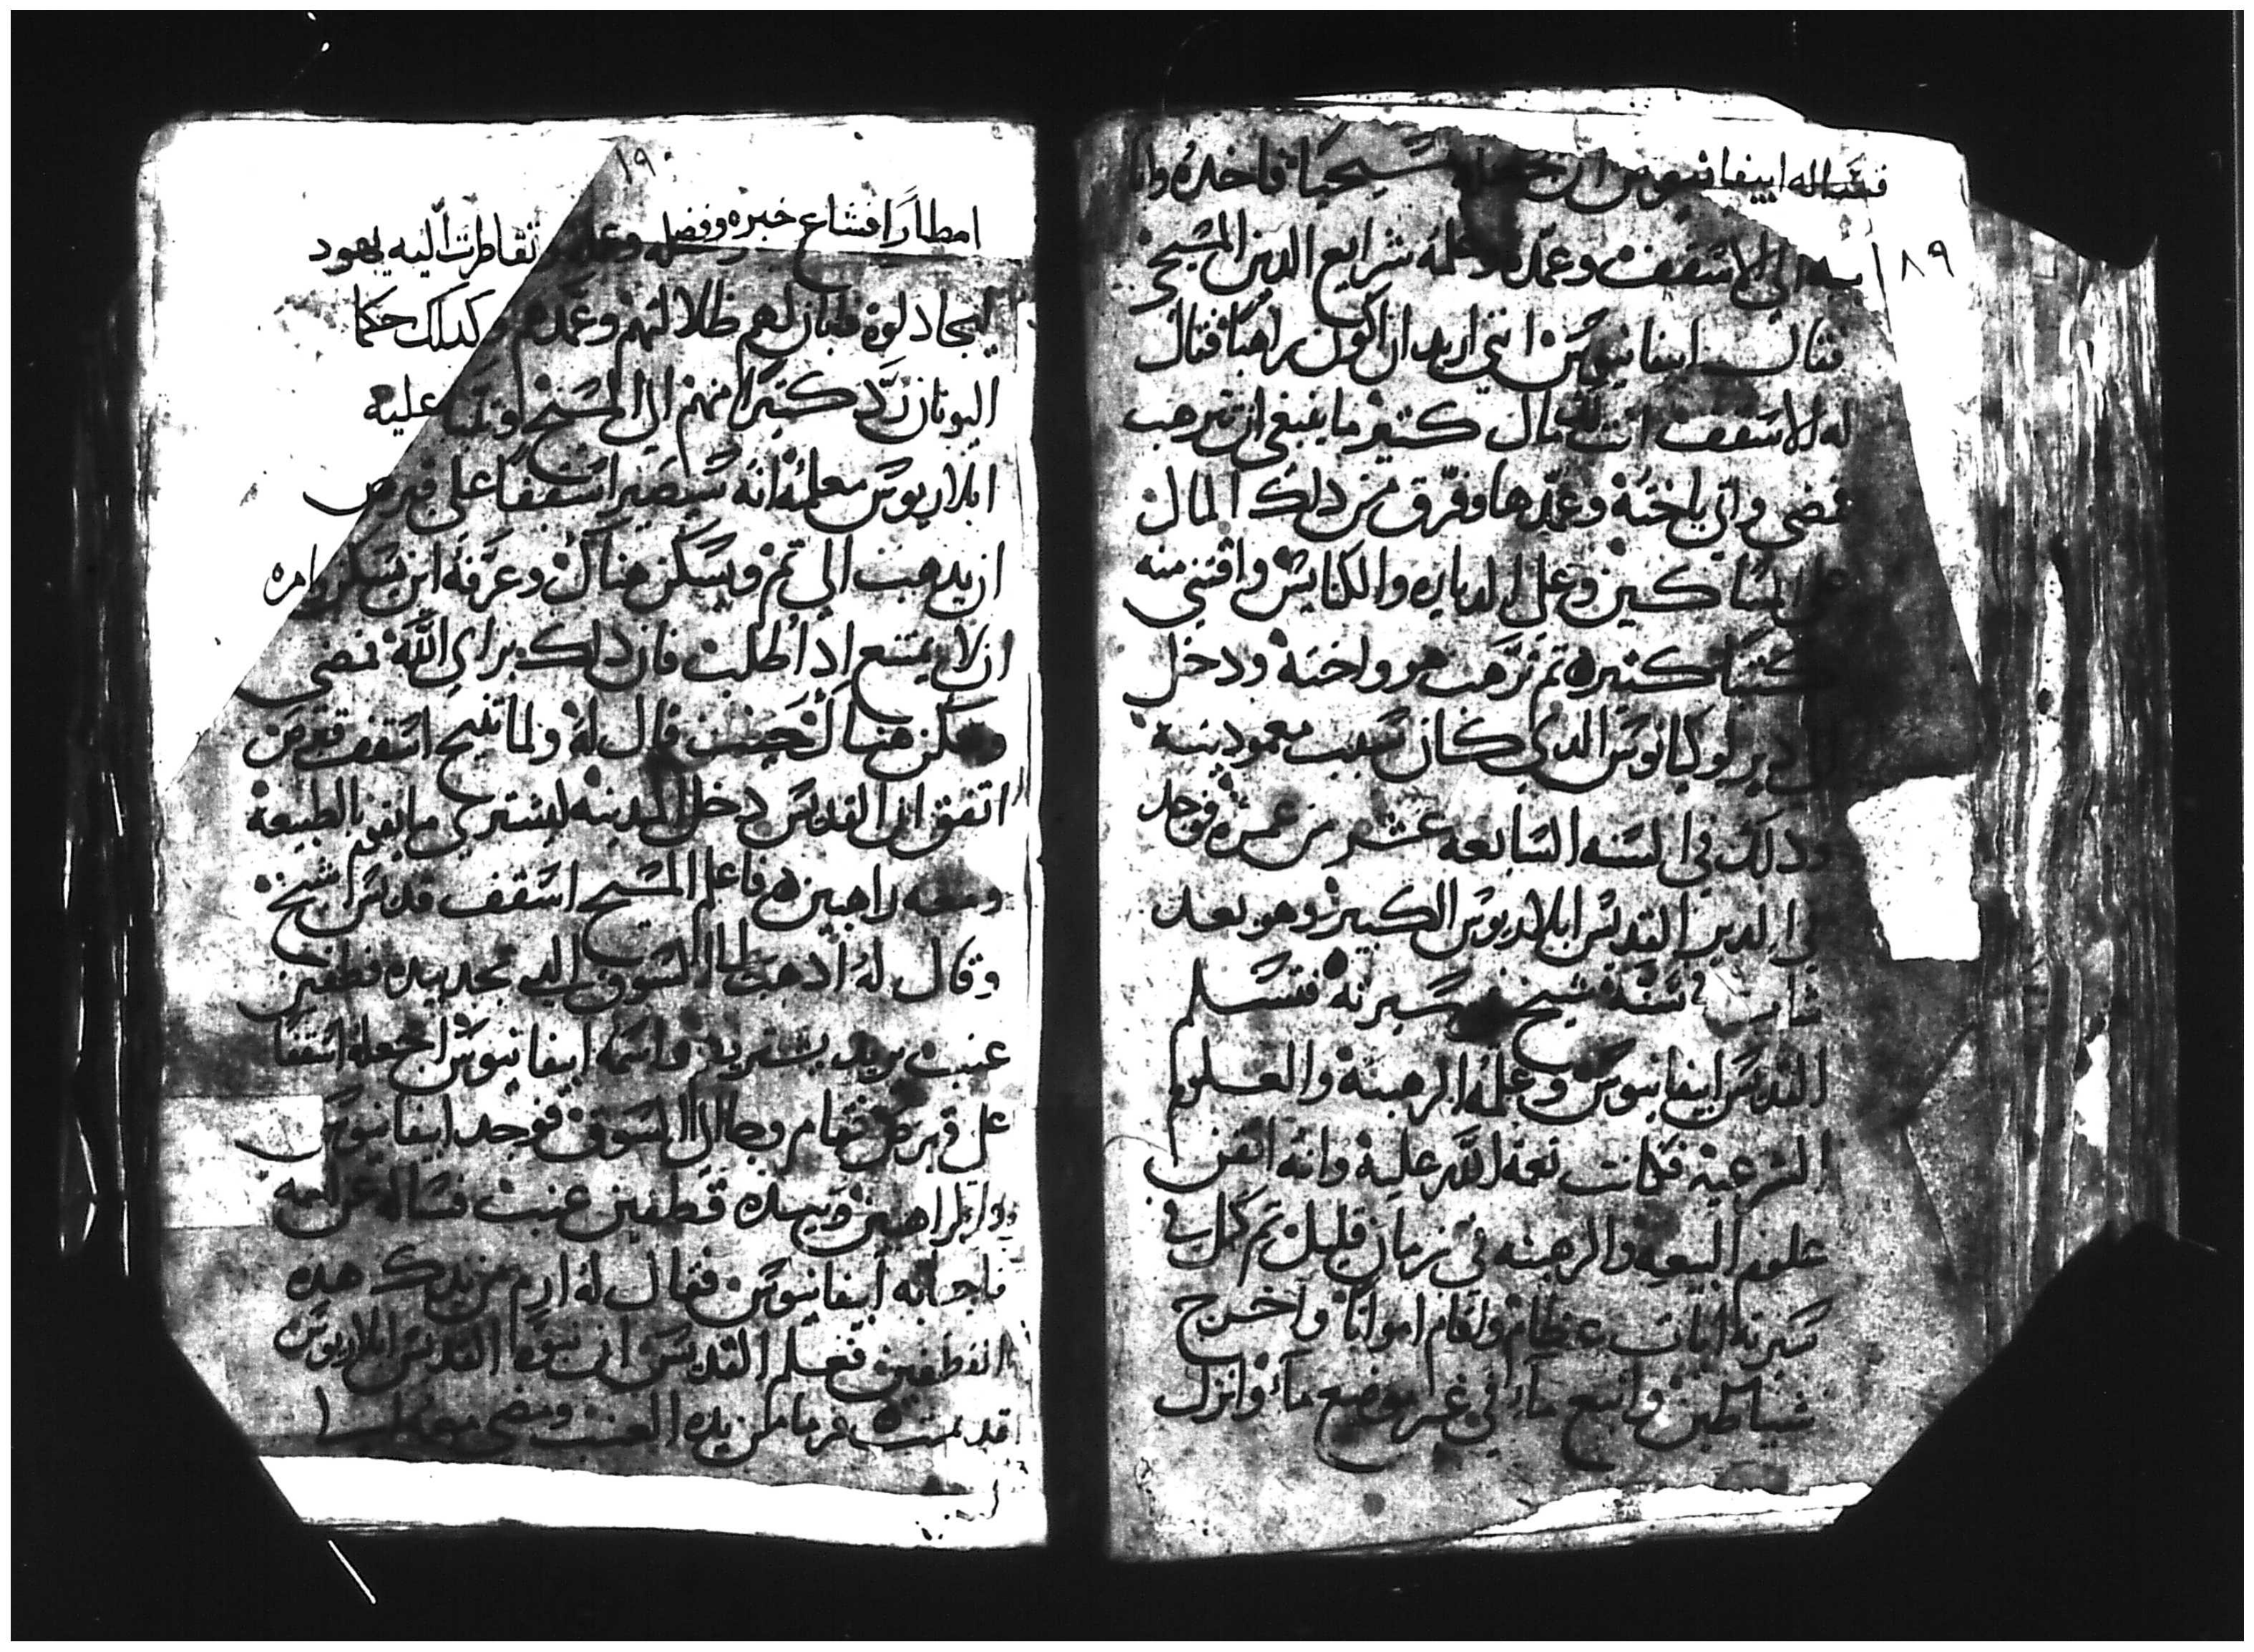 فسأله ابيفانيوس ان يجعله مسيحيا فاخده واتا
به الى الاسقف وعمده وعلمه شرايع الدين المسيحي
١٨٩
فقال ابيفانيوس انني اريد ان اكون راهبا فقال
له الاسقف انت لك مال كتير ما ينبغي ان تترهب
فمضى واتى باخته وعمدها وفرق من دلك المال
على المساكين وعلى الدياره والكنايس واقتنى منه
كتبا كتيره تم ترهب هو واخته ودخل
الى دير لوكيانوس الدي كان سبب معموديته
ودلك في السنه السابعه عشر من عمره فوجد
في الدير القديس ابلاريوس الكبير وهو بعد
شاب في سنه شيخ في سيرته فتسلم
القديس ابيفانيوس وعلمه الرهبنة والعلوم
الشرعيه فكانت نعمة الله عليه وانه اتقن
علوم البيعه والرهبنه في زمان قليل تم كمل في
سيرته ايات عظام واقام امواتا واخرج
شياطين وانبع مآء في غير موضع مآء وانزل
١٩٠
امطارا فشاع خبره وفضله وعلمه تقاطرت اليه يهود
ليجادلوه فبان لهم ظلالتهم وعمدهم وكدلك حكما
اليونان رد كتيرا منهم الى المسيح وتنبا عليه
ابلاريوس معلمه انه سيصير اسقفا على قبرص
ان يدهب الي تم ويسكن هناك وعرفه اين يسكن وامره
ان لا يمتنع ادا طلب فان دلك براي الله فمضى
وسكن هناك حيث قال له ولما تنيح اسقف قبرص
اتفق ان القديس دخل المدينه ليشتري ما يقوم بالطبيعة
ومعه راهبين فاعلم المسيح اسقف قديس شيخ
وقال له ادهب الى السوق الدي تجد بيده قطفين
عنب يريد يشتريه واسمه ابيفانيوس اجعله اسقفا
على قبرص فقام وجا الى السوق فوجد ابيفانيوس
والراهبين وبيده قطفين عنب فساله عن اسمه
فاجابه ابيفانيوس فقال له ارم من يدك هده
القطفين فعلم القديس ان نبوة القديس ابلاريوس
قد تمت فرماها من يده العنب ومضى معه